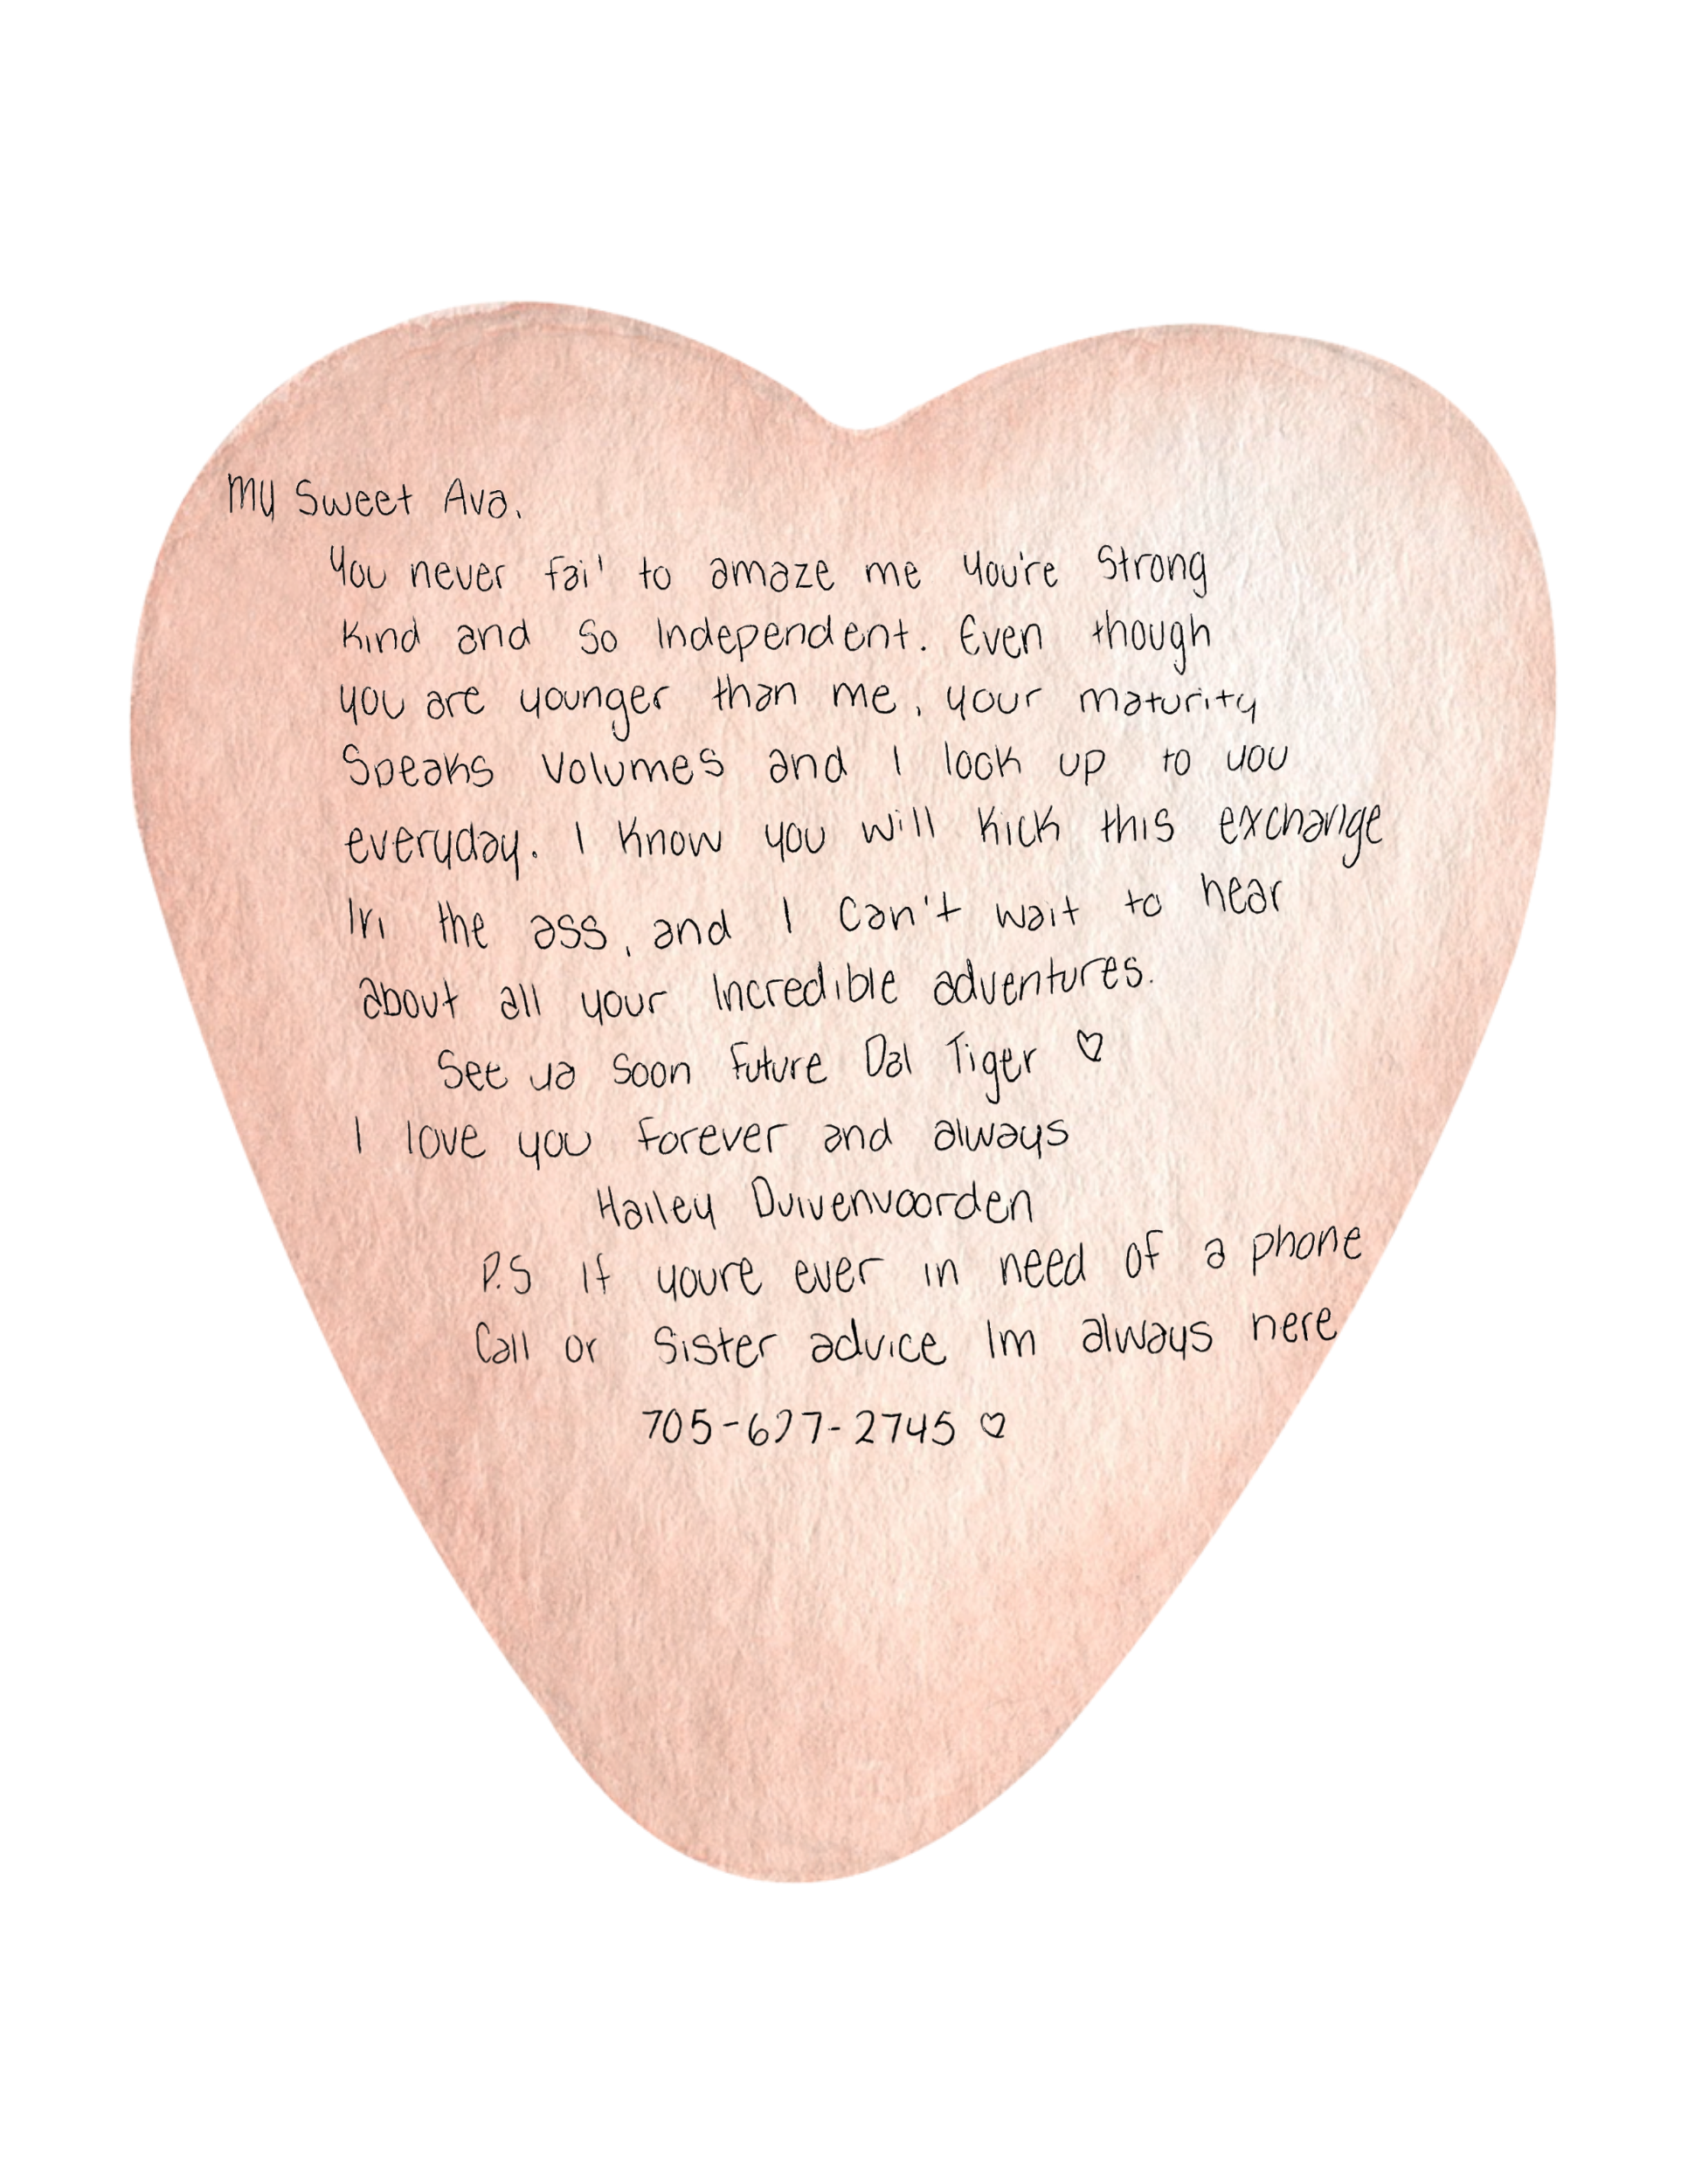 My Sweet Ava,
You never fail to amaze me you're Strong
Kind and so Independent. Even though
you are younger than me, your maturity
Speaks volumes and I look up to you
everyday. I know you will kick this exchange
In the ass, and I can't wait to hear
about all your Incredible adventures.
See ya soon Future Dal Tiger ♡
I love you forever and always
Hailey Duivenvoorden
P.S If youre ever in need of a phone
Call or Sister advice Im always here
705-627-2745 ♡